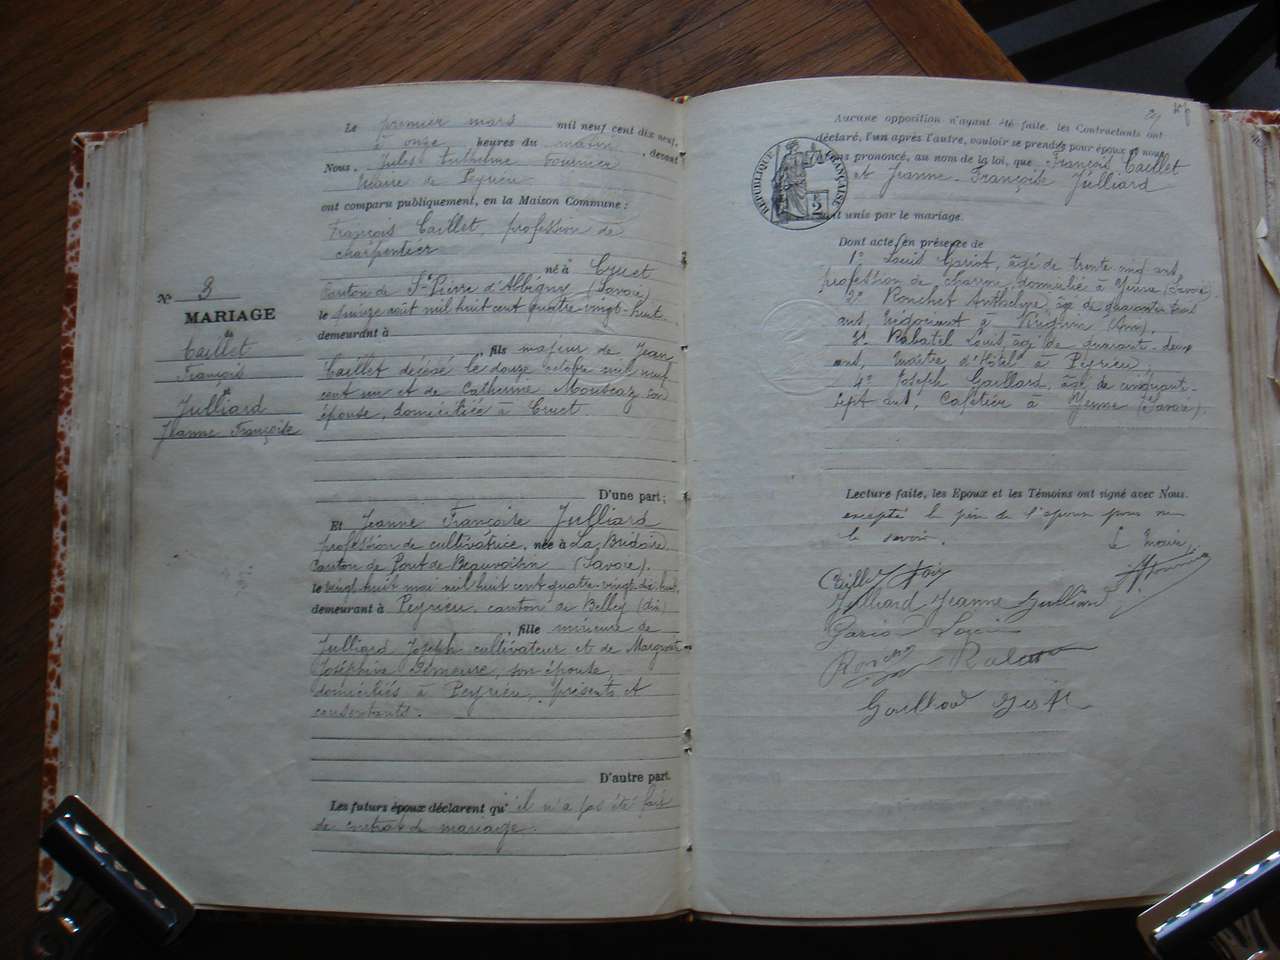 Nº 3
MARIAGE
de
Caillet
François
et
Julliard
Jeanne Françoise
Le premier mars mil neuf cent dix neuf,
à onze heures du matin, devant
Nous, Jules Anthelme Fournier
Maire de Peyrieu
ont comparu publiquement, en la Maison Commune :
François Caillet, profession de
charpentier
né à Cruet
Canton de St Pierre d'Albigny (Savoie)
le août mil huit cent quatre vingt-huit
demeurant à
, fils majeur de Jean
Caillet décédé le douze octobre mil neuf
cent un et de Catherine son
épouse, domiciliée à Cruet.
D'une part ;
Et Jeanne Françoise Julliard
profession de cultivatrice, née à La Bridoire
Canton de Pont de Beauvoisin (Savoie).
le vingt huit mai mil huit cent quatre-vingt-dix-huit,
demeurant à Peyrieu, canton de Belley (Ain)
, fille mineure de
Julliard Joseph cultivateur et de Marguerite
Joséphine son épouse,
domiciliés à Peyrieu, présents et
consentants.
D'autre part.
Les futurs époux déclarent qu'il n'a pas été fait
de contrat de mariage.
29
Aucune opposition n'ayant été faite, les Contractants ont
déclaré, l'un après l'autre, vouloir se prendre pour époux et nous
avons prononcé, au nom de la loi, que François Caillet
et Jeanne-Françoise Julliard
sont unis par le mariage.
RÉPUBLIQUE FRANÇAISE
Dont acte, en présence de
1º Louis âgé de trente neuf ans,
profession de charron, domicilié à Yenne (Savoie).
2º Anthelme, âgé de quarante
ans, négociant à (Ain).
3º Rabatel Louis, âgé de quarante-deux
ans, Maître d'Hôtel à Peyrieu
4º Joseph Gaillard, âgé de cinquante-
sept ans, Cafetier à Yenne (Savoie).
Lecture faite, les Epoux et les Témoins ont signé avec Nous.
excepté la mère de l'époux pour ne
le savoir. Le Maire,
Julliard Jeanne Julliard